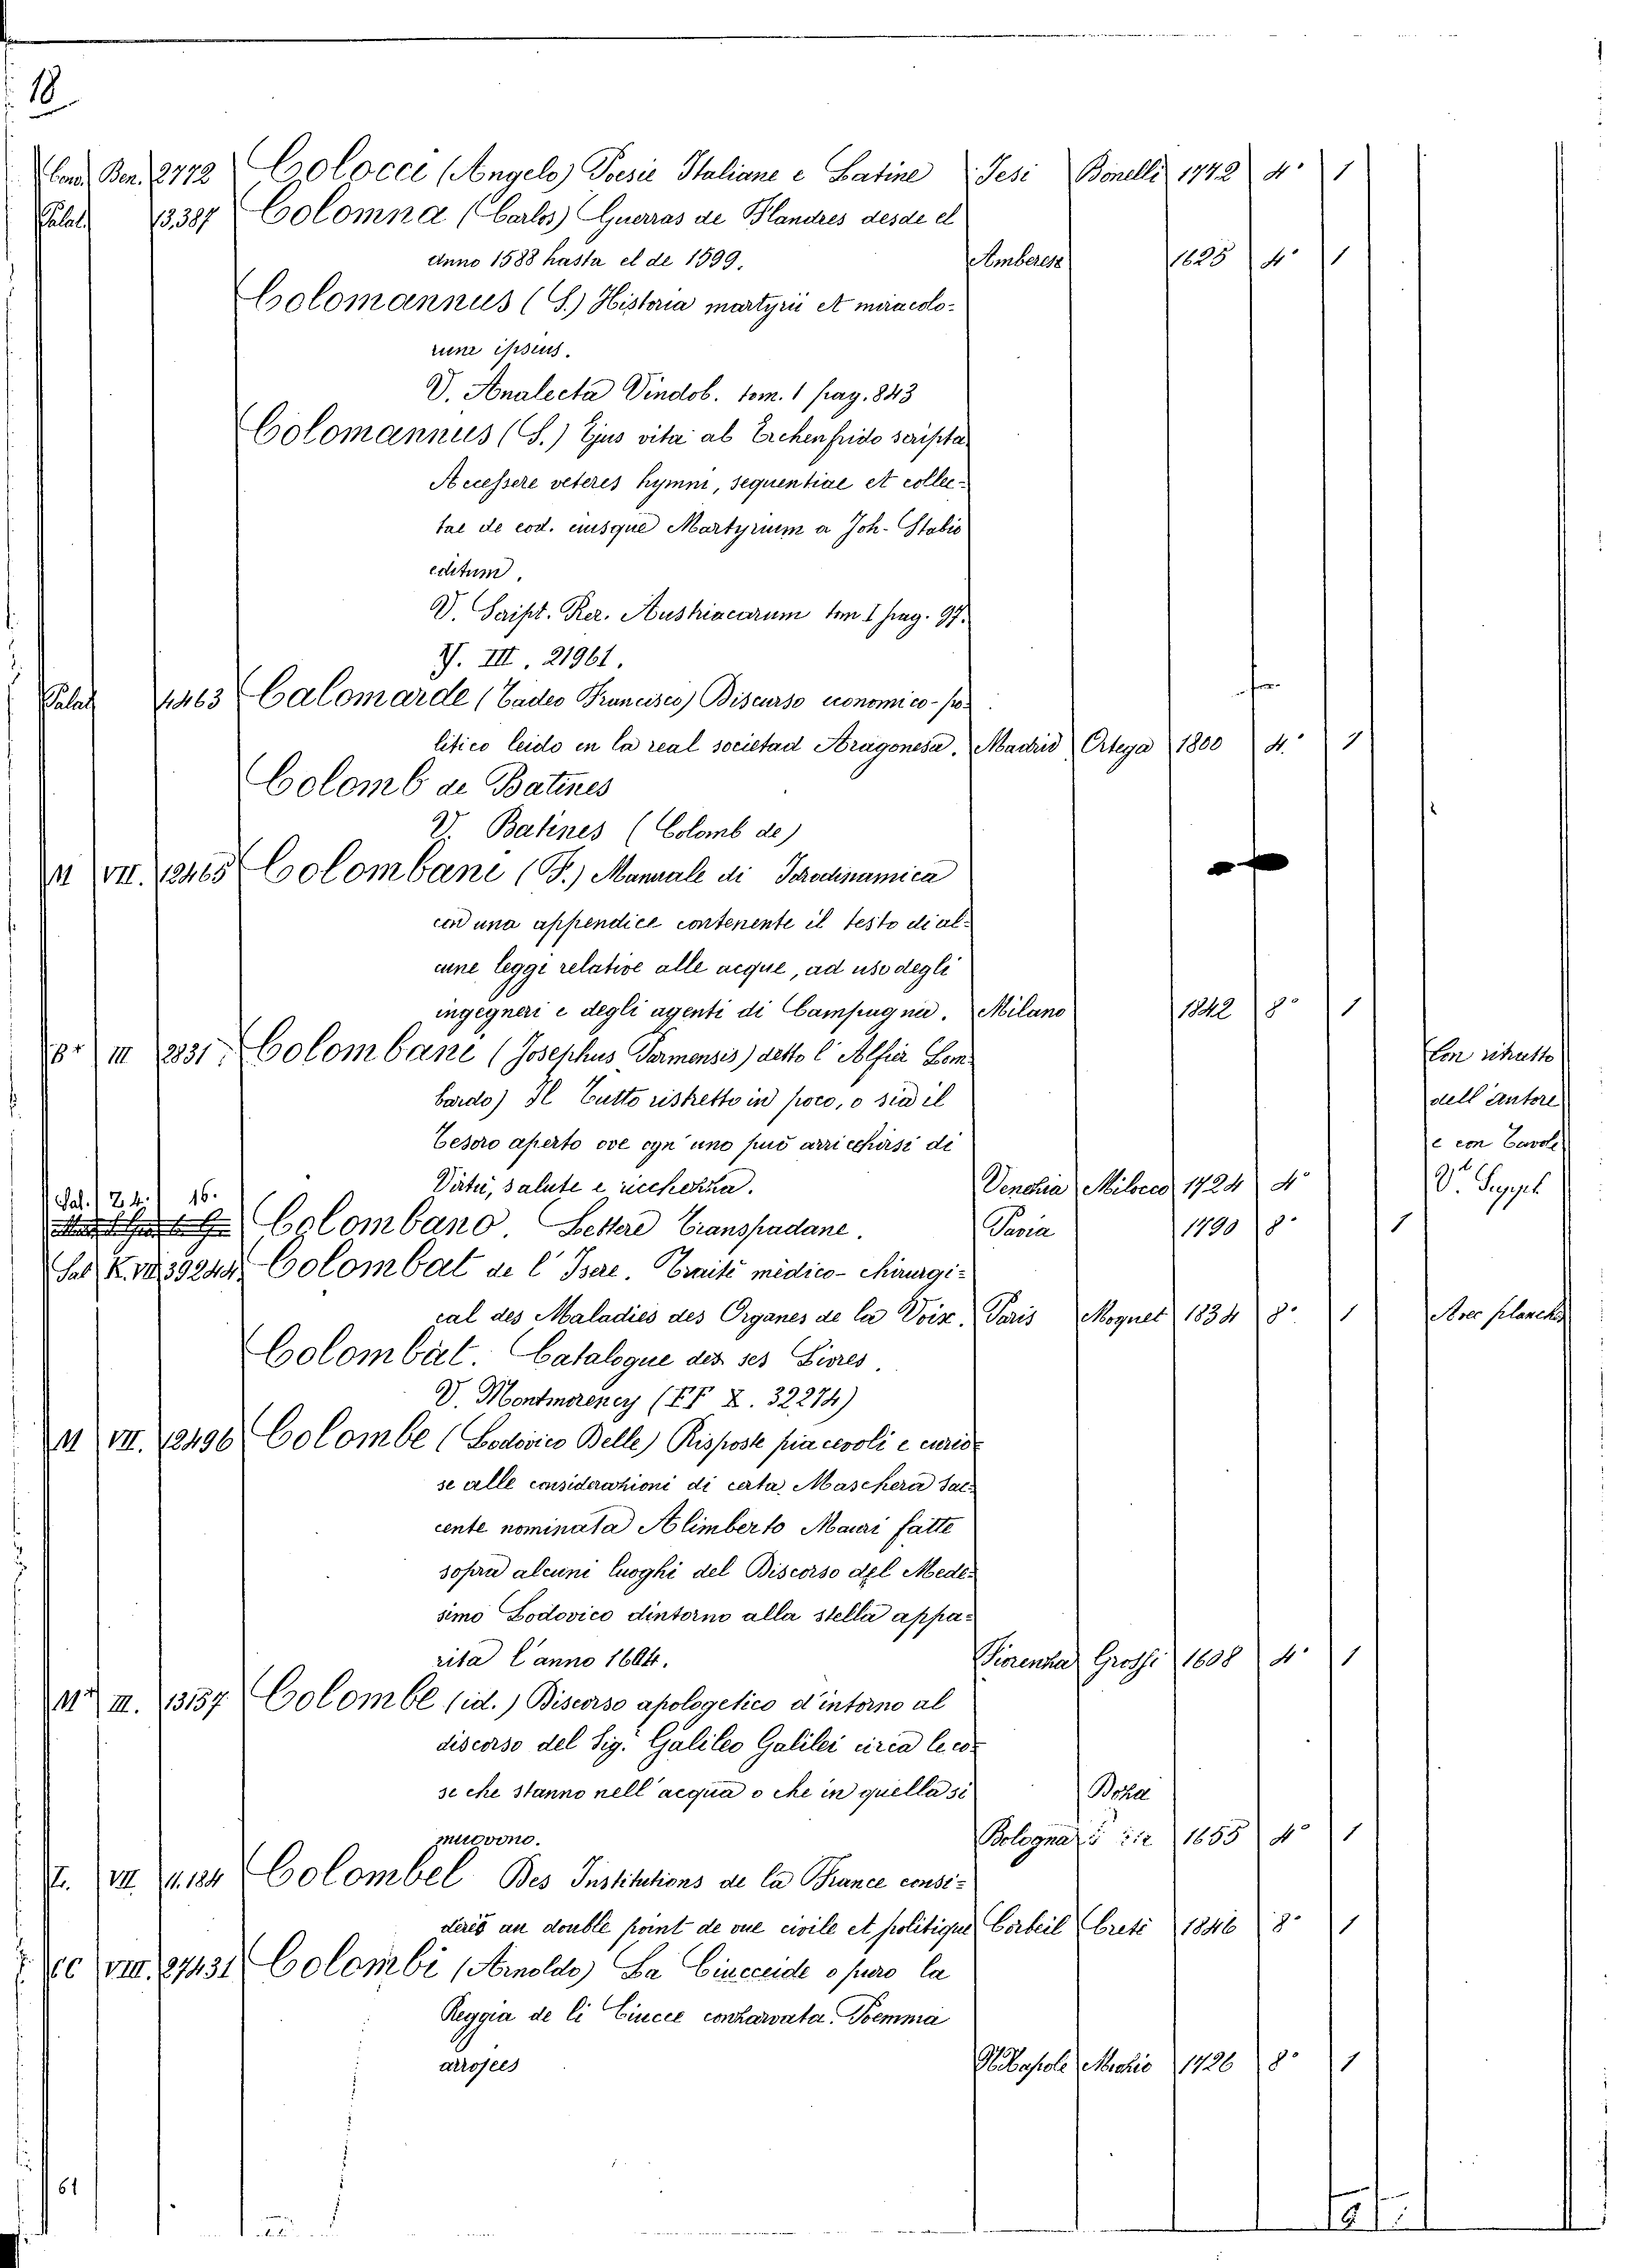 18
Cond. Ben. 2772 Colocci (Angelo) Poesie Italiane e Latine Jesi Bonelli 1772 4° 1
Palat. 13,387 Colomna (Carlos) Guerras de Flandres desde el
anno 1588 hasta el de 1599. Amberes 1625 4° 1
Colomannus (S.) Historia martyrii et miracolo-
rum ipsius.
V. Analecta Vindob. tom. 1 pag. 843
Colomannus (S.) Ejus vita ab Erchenfrido scripta
Accessere veteres hymni, sequentiae et collec-
tae de eod. eiusque Martyrium a Joh. Stabio
editum.
V. Script. Rer. Austriacarum tom 1 pag. 97.
Y. III. 21961.
Palat 4463 Calomarde (Tadeo Francisco) Discurso economico-po-
litico leido en la real societad Aragonesa. Madrid Ortega 1800 4.° 1
Colomb de Batines
V. Batines (Colomb de)
M VII. 12465 Colombani (F.) Manuale di Idrodinamica
con una appendice contenente il testo di al-
cune leggi relative alle acque, ad uso degli
ingegneri e degli agenti di Campagna. Milano 1842 8° 1
B* III 2831. Colombani (Josephus Parmensis) detto l'Alfier Lom- Con ritratto
bardo) Il Tutto ristretto in poco, o sia il dell'autore
Tesoro aperto ove ogn'uno può arricchirsi di e con Tavole
Virtù, salute e ricchezza. Venezia Milocco 1724 4° V. Suppl
Sal. Z 4. 16.
Colombano. Lettere Transpadane. Pavia 1790 8° 1
Sal. K. VII 39244 Colombat de l'Isere. Traité médico-chirurgi-
cal des Maladies des Organes de la Voix. Paris Moquet 1834 8° 1 Avec planches
Colombat. Catalogue des ses Livres.
V. Montmorency (FF X. 32274)
M VII. 12496 Colombe (Lodovico Delle) Risposte piacevoli e curio-
se alle considerazioni di certa Maschera sac-
cente nominata Alimberto Mauri fatte
sopra alcuni luoghi del Discorso del Mede-
simo Lodovico dintorno alla stella appa-
rita l'anno 1604. Fiorenza Grossi 1608 4° 1
M* III. 13157 Colombe (id.) Discorso apologetico d'intorno al
discorso del Sig. Galileo Galilei circa le co-
se che stanno nell'acqua o che in quella si Doza
muovono. Bologna 1655 4° 1
VII 11.124 Colombel Des Institutions de la France consi-
derés au double point de vue civile et politique Corbeil Creté 1846 8° 1
CC VIII. 27431 Colombi (Arnoldo) La Ciucceide o puro la
Reggia de li Ciucce conzarvata. Poemma
arrojeco Napole Muzio 1726 8° 1
61